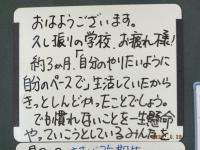 おはようございます。
久し振りの学校、お疲れ様!
約3ヵ月、自分のやりたいように
自分のペースで生活していたから
きっとしんどかったことでしょう。
でも慣れないことを一生懸命
やっていこうとしているみんなを